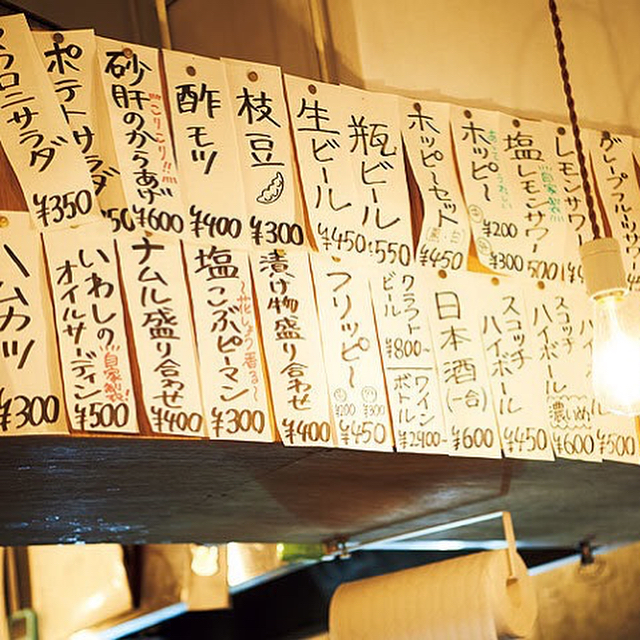 マカロニサラダ
¥350
ポテトサラダ
砂肝のからあげ
こりこり!!!
¥600
酢モツ
¥400
枝豆
¥300
生ビール
¥450
瓶ビール
¥550
ホッピーセット
白
黒
¥450
ホッピー
中
¥200
外
¥300
塩レモンサワー
自家製
500
レモンサワー
¥4
グレープフルーツサワー
ハムカツ
¥300
いわしの
オイルサーディン
自家製!
¥500
ナムル盛り合わせ
¥400
塩こぶピーマン
¥300
漬け物盛り合わせ
¥400
フリッピー
¥200
¥300
¥450
クラフト
ビール
¥800~
ワイン
ボトル
¥2400~
日本酒
(一合)
¥600
スコッチ
ハイボール
¥450
スコッチ
ハイボール
濃いめ!
¥600
¥500